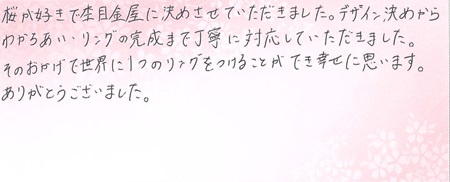 桜が好きで杢目金屋に決めさせていただきました。デザイン決めから
わかちあい・リングの完成まで丁寧に対応していただきました。
そのおかげで世界に1つのリングをつけることができ幸せに思います。
ありがとうございました。